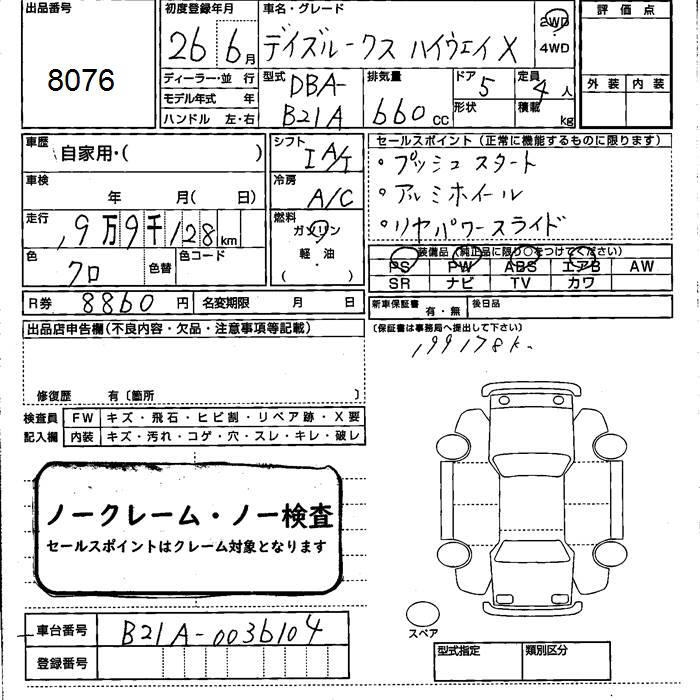 出品番号
8076
初度登録年月
26 6月
車名・グレード
デイズルークス ハイウェイX
2WD
4WD
評価点
外装 内装
ディーラー・並行
モデル年式 年
ハンドル 左・右
型式
DBA-
B21A
排気量
660 cc
ドア 5
形状
定員 4 人
積載 kg
車歴
自家用・( )
シフト
I A/T
車検
年 月( 日)
冷房
A/C
走行
19万9千128km
燃料
ガソリン
軽・油
( )
色
クロ
色替
色コード
R券 8860円
名変期限 月 日
セールスポイント(正常に機能するものに限ります)
・プッシュスタート
・アルミホイール
・リヤパワースライド
装備品(純正品に限り○をつけてください)
PS PW ABS エアB AW
SR ナビ TV カワ
新車保証書 有・無
後日品
(保証書は事務局へ提出して下さい)
199178k.
出品店申告欄(不良内容・欠品・注意事項等記載)
修復歴 有〔箇所 〕
検査員
記入欄
FW キズ・飛石・ヒビ割・リペア跡・X要
内装 キズ・汚れ・コゲ・穴・スレ・キレ・破レ
ノークレーム・ノー検査
セールスポイントはクレーム対象となります
車台番号 B21A-0036104
登録番号
スペア
型式指定
類別区分